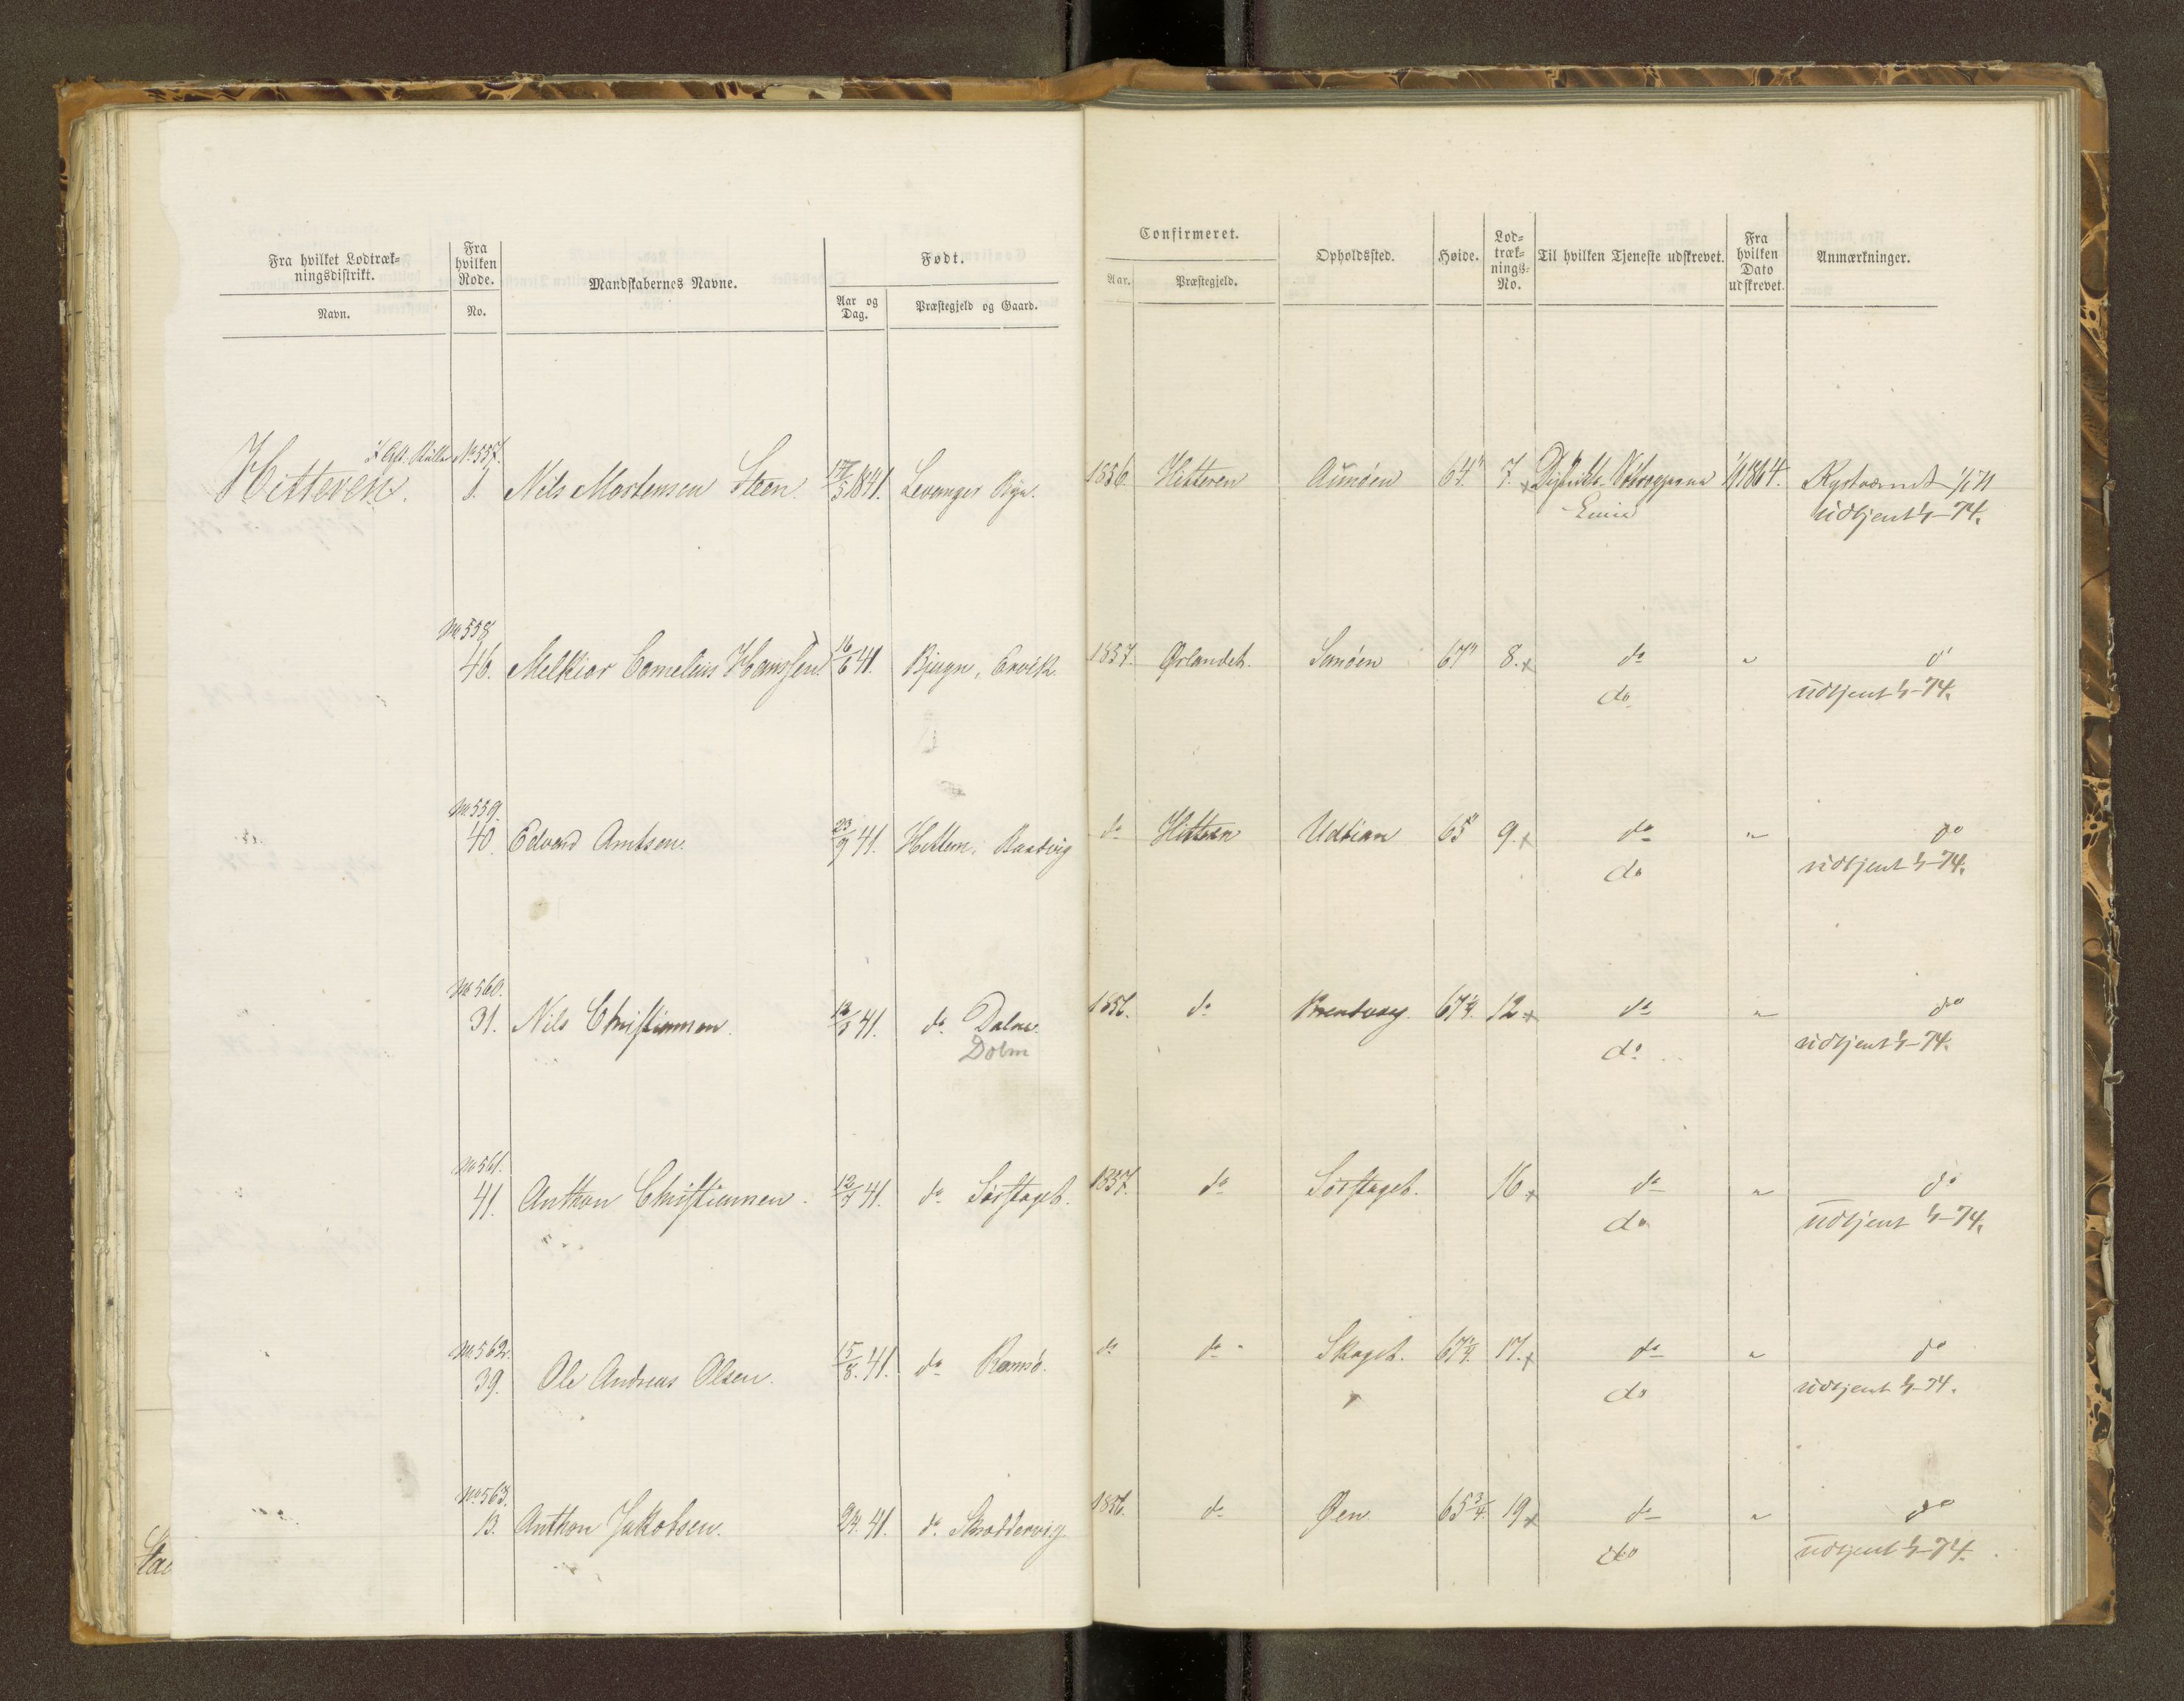 Fra hvilket Lodtræk-
ningsdistrikt.
Navn.
Fra
hvilken
Rode.
No.
Mandskabernes Navne.
Født.
Aar og
Dag.
Præstegjeld og Gaard.
Confirmeret.
Aar.
Præstegjeld.
Opholdssted.
Høide.
Lod-
træk-
nings-
No.
Til hvilken Tjeneste udskrevet.
Fra
hvilken
Dato
udskrevet.
Anmærkninger.
No 557.
Hitteren. 1. Nils Mortensen Steen. 1841. Levanger 1856. Hitteren Aunøen 64" 7. x Distrikts 1/1 1864. Kystværnet
Linie udtjent 1/4-74.
No 558
46. Melkior Cornelius Hanssen. 16/6 41. Bjugn, 1857. Ørlandet. 67" 8. x do " do
do udtjent 1/4-74.
No 559.
40. Edvard Arntsen. 23/9 41. Hitteren, do Hitteren Udtian 65" 9. x do " do
do udtjent 1/4-74.
No 560.
31. Nils Christiansen. 41. do Dolm 1856. do 67 1/4. 12 x do " do
Dolm do udtjent 1/4-74.
No 561.
41. Anthon Christiansen. 41. do Sørstaget. 1857. do Sørstaget. 16 x do " do
do udtjent 1/4-74.
No 562.
39. Ole Andreas Olsen. 15/8. 41. do Ramsø. do do Skaget. 67 1/4. 17. x do " do
do udtjent 1/4-74.
No 563.
13. Anthon Jakobsen. 41. do 1856. do Øen 65 3/4. 19 x do " do
do udtjent 1/4-74.